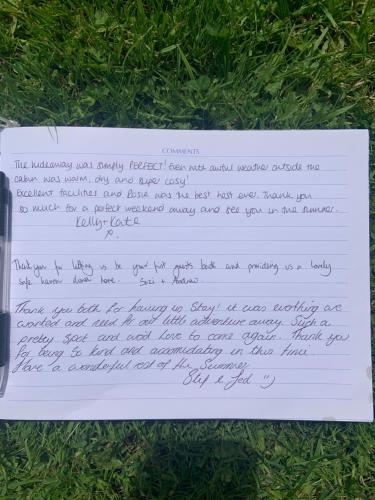 COMMENTS
The hideaway was simply PERFECT! Even with awful weather outside the
cabin was warm, dry and super cosy!
Excellent facilities and Rosie was the best host ever. Thank you
so much for a perfect weekend away and see you in the summer.
Kelly-Kate
x.
Thank you for letting us be your first guests back and providing us a lovely
safe haven down here. Suzi + Andrew
Thank you both for having us stay! it was evrthing we
wanted and need for our little adventure away. Such a
pretty spot and wod love to come again. Thank you
for being so kind and accomidating in this time.
Have a wonderful rest of the Summer
& Jed :)